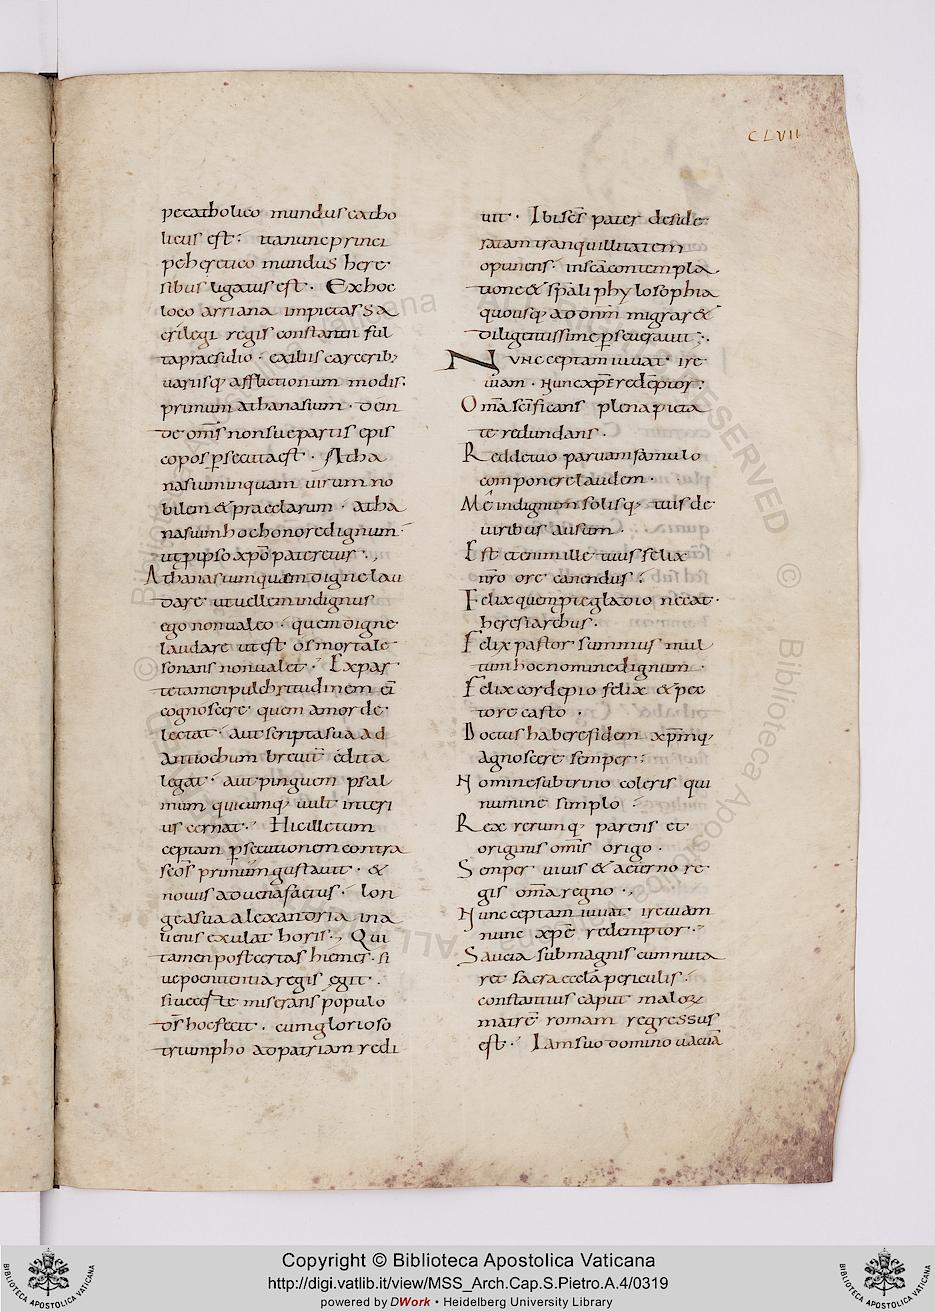 CLVII
pe catholico mundus catho
licus est: ita nunc princi
pe heretico mundus here
sibus ligatus est. Ex hoc
loco arriana impietas sa
crilegi regis constantii ful
ta praesidio. exiliis carcerib;
variisq; afflictionum modis.
primum athanasium. dein
de om̅s non suae partis epis
copos p̲secuta est. Atha
nasium inquam virum no
bilem & praeclarum. atha
nasium hoc honore dignum
ut p̲ ipso xp̅o pateretur.,
Athanasium quem digne lau
dare ut vellem indignus
ego non valeo. quem digne
laudare ut est os mortale
sonans non valet. Ex par
te tamen pulchritudinem ei̅
cognoscere quem amor de
lectat. aut scripta sua ad
antiochum brevit̅ edita
legat. aut pinguem psal
mum quicumq; vult interi
us cernat. Hic illetum
ceptam p̲secutionem contra
sc̅os primum gustavit. &
novus advena factus. lon
ge a sua alexandria in a
lienis exulat horis., Qui
tamen post certas hiemes. si
ve poenitentia regis egit.
sive certe miserans populo
d̅s hoc fecit. cum glorioso
triumpho ad patriam redi
vit. Ibi sc̅s pater deside
ratam tranquillitatem
opinens. in sc̅a contempla
tione & sp̅ali phylosophia
quousq; ad dn̅m migrar&
diligentissime p̲severavit;.
Nunc ceptam iuvat ire
viam. nunc xp̅e rede̅ptor:
Om̅a sc̅ificans plena pieta
te redundans.
Redde tuo parvam famulo
componere laudem.
Me indignum solisq; tuis de
viribus ausum.
Est etenim ille tuus felix
nr̅o ore canendus:
Felix quem pie gladio necat
heresiarchus.
Felix pastor summus mul
tum hoc nomine dignum.
Felix corde pio felix & pec
tore casto.
Doctus habere fidem xp̅mq;
agnoscere semper:
Nomine sub trino coleris qui
numine simplo:
Rex rerumq; parens et
originis om̅is origo.
Semper vivis & aeterno re
gis om̅a regno.,
Nunc ceptam iuvat ire viam
nunc xp̅e redemptor.
Saucia sub magnis cum nuta
ret sacra eccl̅a periculis.
constantius caput malor̅
matre̅ romam regressus
est. Iam suo domino vacua̅
Copyright © Biblioteca Apostolica Vaticana
http://digi.vatlib.it/view/MSS_Arch.Cap.S.Pietro.A.4/0319
powered by DWork • Heidelberg University Library